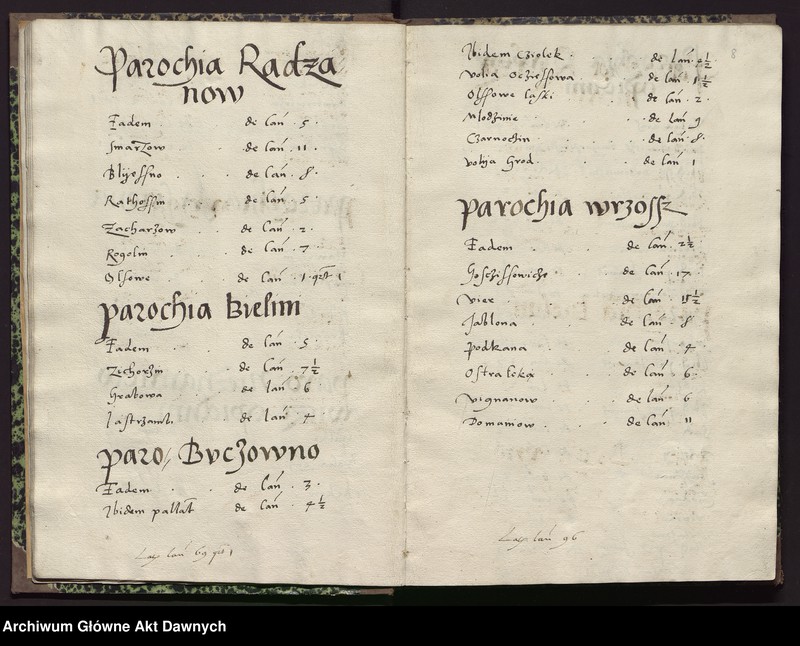 Parochia Radza
now
Eadem de lań 5
Smarzow de lań 11
Blijessno de lań 8
Rathossin de lań 5
Zacharzow de lań 2
Rogolin de lań 7
Olssowe de lań 1
parochia Bielini
Eadem de lań 5
Zichorzin de lań 7½
Grabowa de lań 6
Jastrzamb de lań 4
paro Bvczowno
Eadem de lań 3
Ibidem pallat de lań 4½
lań 69
8
Ibidem Cziolek de lań
volia de lań 1½
Olssowe Laski de lań 2
Mlodzinie de lań 9
Czarnochin de lań 8
volija Grod de lań 1
parochia wrzossz
Eadem de lań 2½
Goschissowicze de lań 17
vier de lań
Jablona de lań 8
podkana de lań 4
Ostraleka de lań 6
vignanow de lań 6
Domaniow de lań 11
lań 96
Archiwum Główne Akt Dawnych